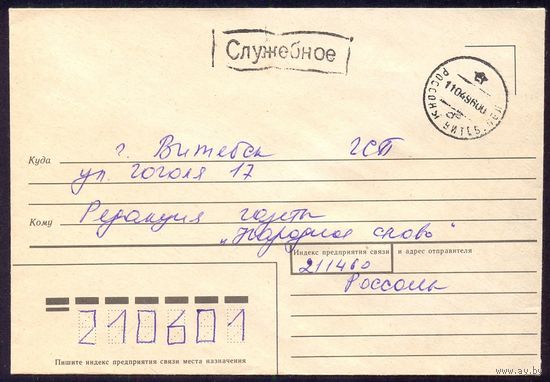 Служебное
РОССОНЫ
11049600
Куда г. Витебск ГСП
ул. Гоголя 17
Кому Редакция газеты
„Народное слово"
Индекс предприятия связи и адрес отправителя
211460
Россоны
210601
Пишите индекс предприятия связи места назначения
www.ay.by